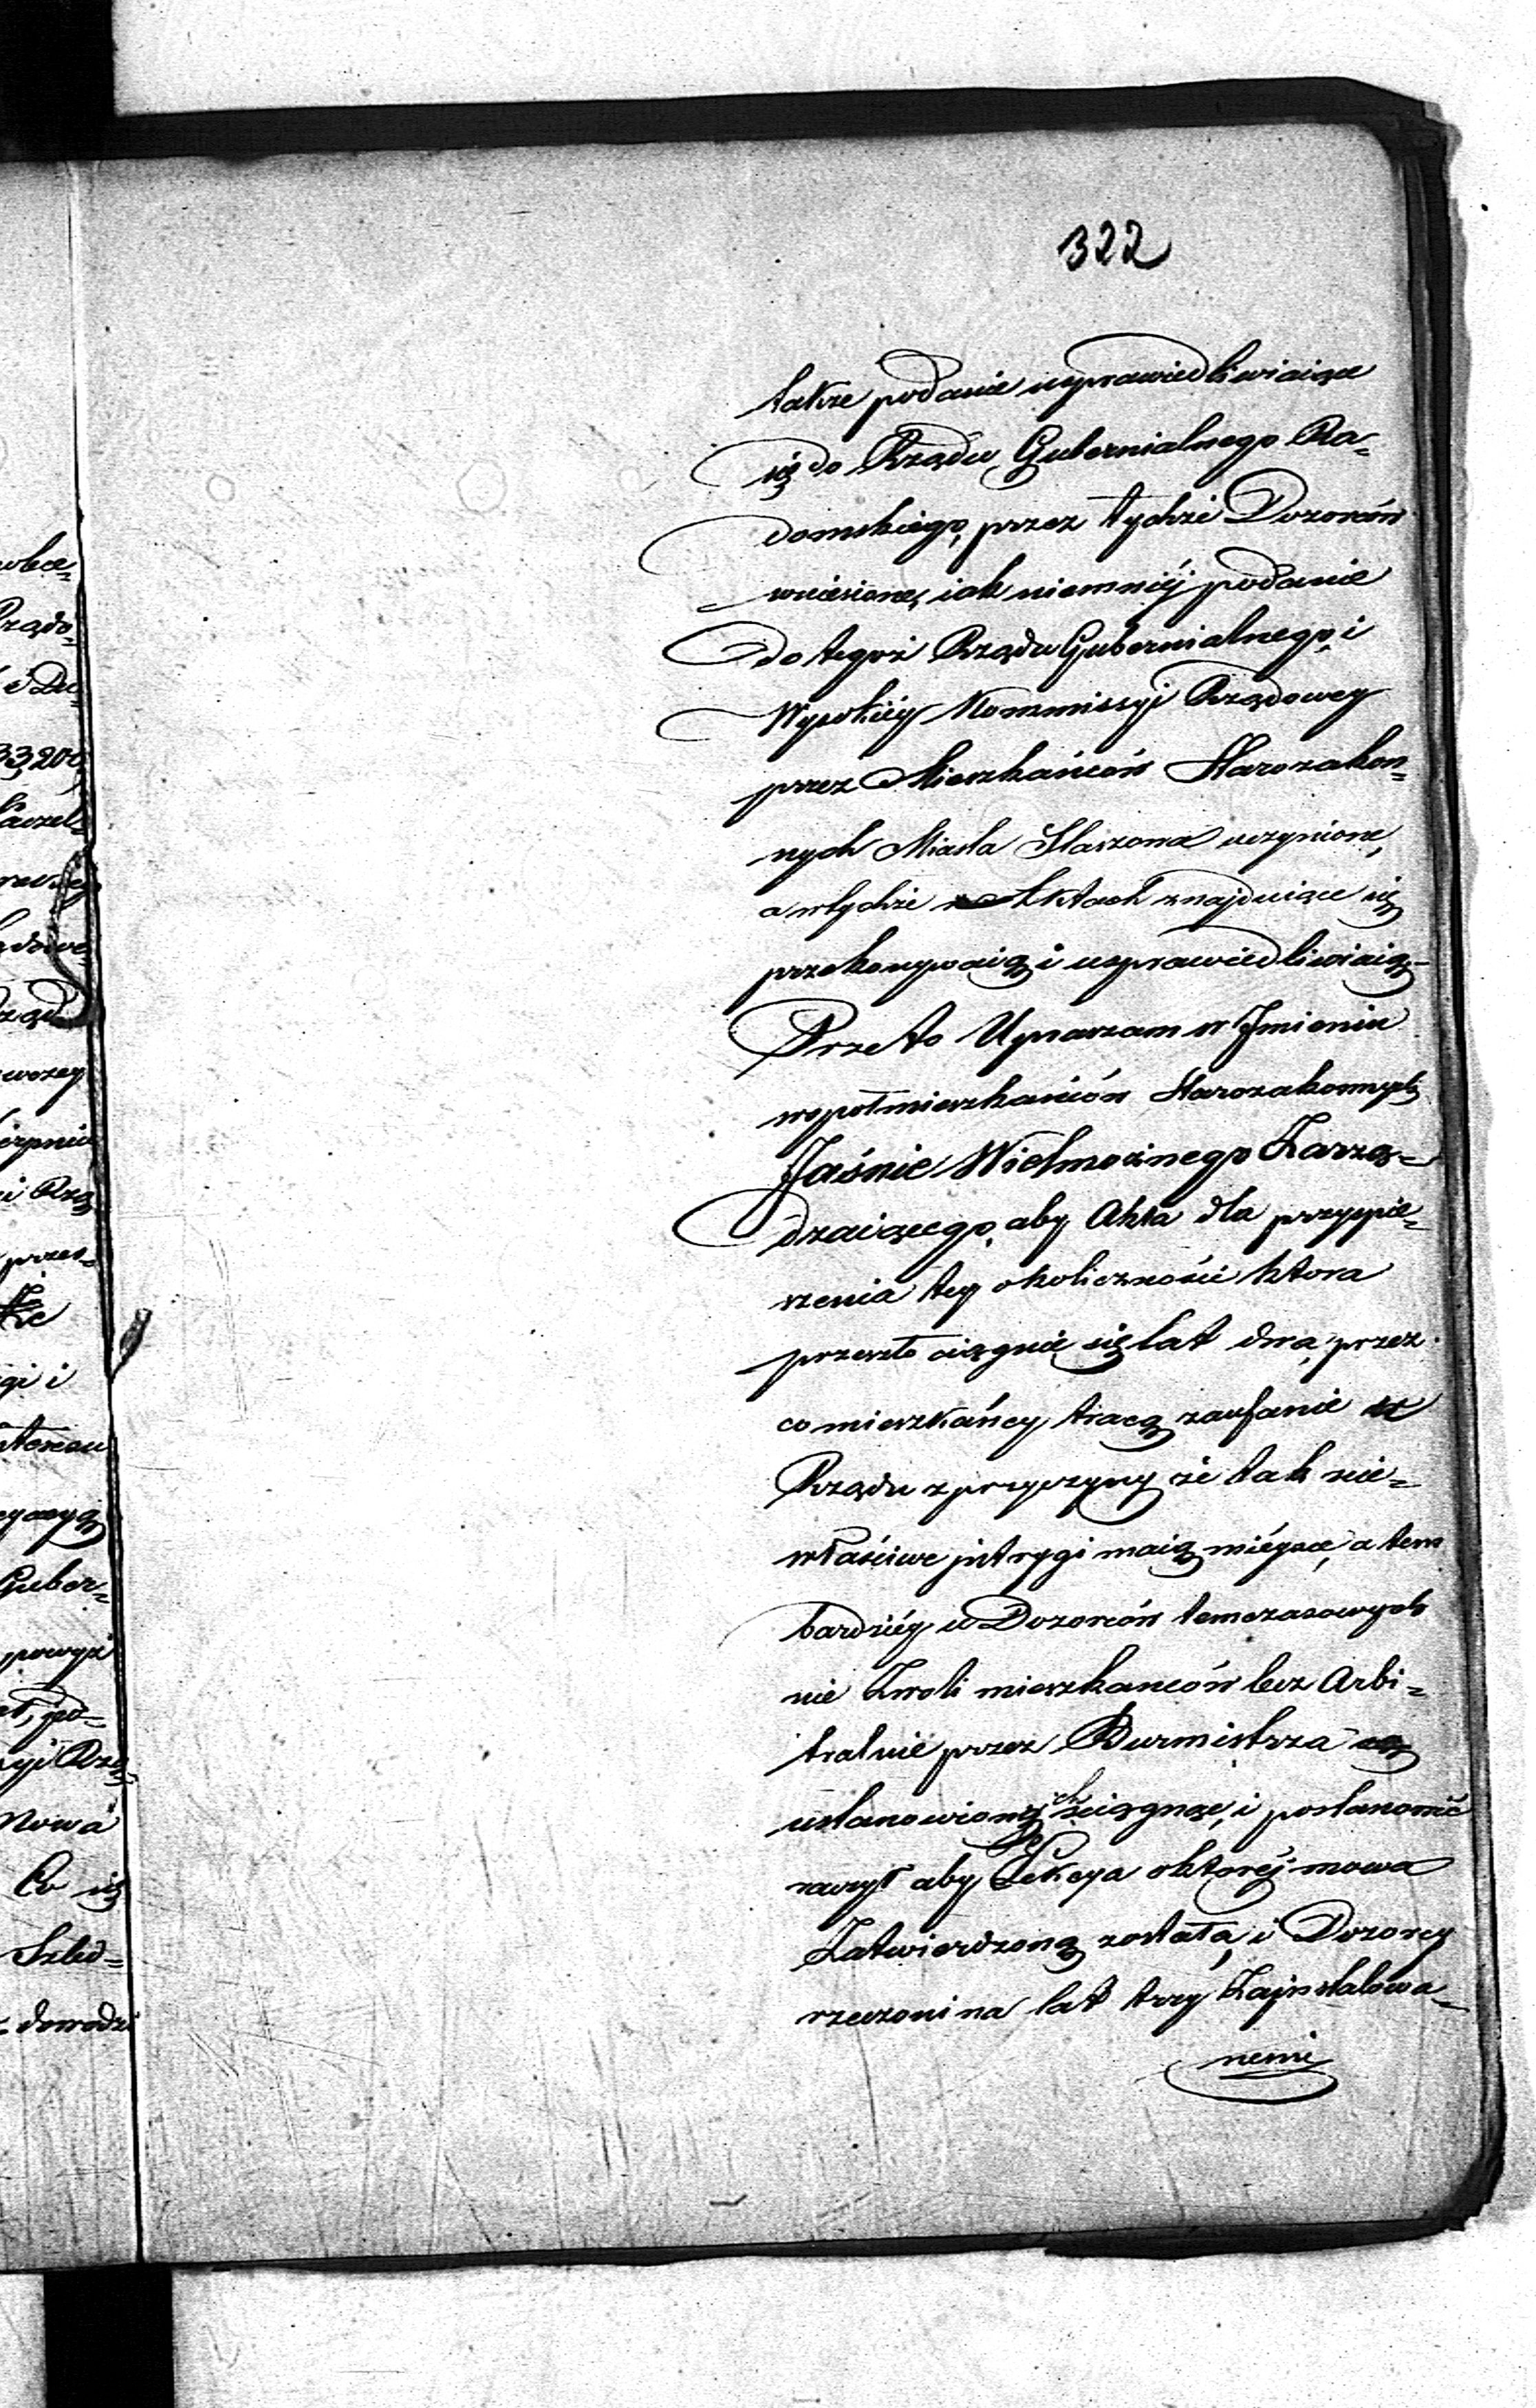 322
także podanie usprawiedliwiaiące
się do Rządu Gubernialnego Ra=
domskiego, przez tychże Dozorców
wniesione, iak niemniéj podanie
do tegoż Rządu Gubernialnego, i
Wysokiéy Kommissyi Rządowey
przez Mieszkańców Starozakon=
nych Miasta Staszowa uczynione,
a w tychże Aktach znajduiące się
przekonywaią i usprawiedliwiaią
Przeto Upraszam w Jmieniu
wspołmieszkańców Starozakonnych
Jaśnie Wielmożnego Zarzą=
dzaiącego, aby Akta dla przyspie=
szenia tey okoliczności ktora
przeszło ciągnie się lat dwa, przez
co mieszkańcy tracą zaufanie
Rządu z przyczyny że tak nie=
właściwe jntrygi maią miéysce, a tem
bardziéy u Dozorców temczasowych
nie Zwoli mieszkanców lecz Arbi=
tralnie przez Burmistrza
ustanowionych ściągnąć, i postanowić
raczył aby Elekcya o którój mowa
Zatwierdzoną została, i Dozorcy
rzeczeni na lat trzy Zajnstalowa=
nemi
wbec=
Rządo=
i Du=
33,200
Guber=
powyż
Nowa
Co się
dowodzi